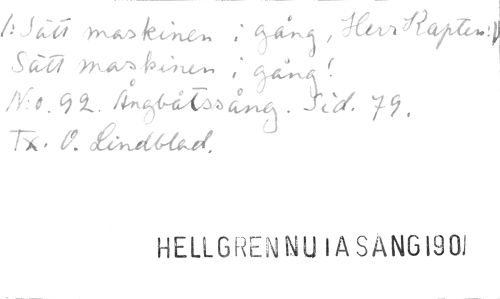 /: Sätt maskinen i gång, Herr Kapten :/
Sätt maskinen i gång!
N:o. 92. Ångbåtssång. Sid. 79.
Tx. O. Lindblad.
HELLGREN NUIA SANG 1901